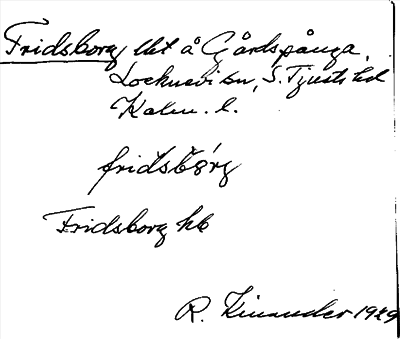 Fridsborg, lht å Gårdspånga,
Locknevi sn, S. Tjusts hd
Kalm. l.
fridsbórg
Fridsborg hb
R. Kinander 1929